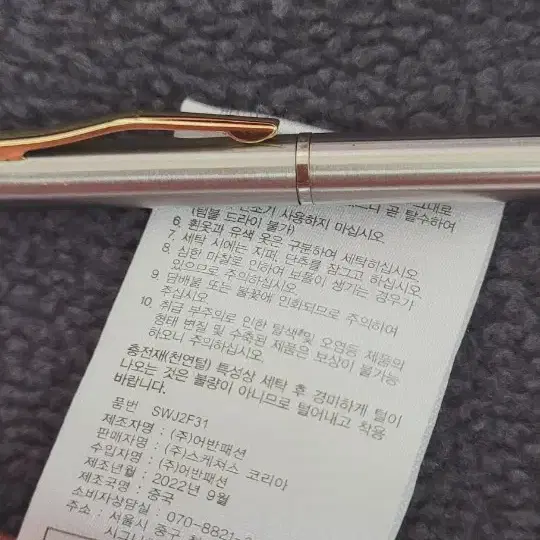 그대로
곧 탈수하여
건조기 사용하지 마십시오
(텀블 드라이 불가)
6. 흰옷과 유색 옷은 구분하여 세탁하십시오
7. 세탁 시에는 지퍼, 단추를 잠그고 하십시오
8. 심한 마찰로 인하여 보풀이 생기는 경우가
있으므로 주의하십시오
9. 담배불 또는 불꽃에 인화되므로 주의하여
주십시오
10. 취급 부주의로 인한 탈색 및 오염등 제품의
형태 변질 및 수축된 제품은 보상이 불가능
하오니 주의하십시오.
충전재(천연털) 특성상 세탁 후 경미하게 털이
나오는 것은 불량이 아니므로 털어내고 착용
바랍니다.
품번 SWJ2F31
제조자명 : (주)어반패션
판매자명 : (주)스케쳐스 코리아
수입자명 : (주)어반패션
제조년월 : 2022년 9월
제조국명 : 중국
소비자상담실 : 070-8821-
주소 : 서울시 중구
시그니